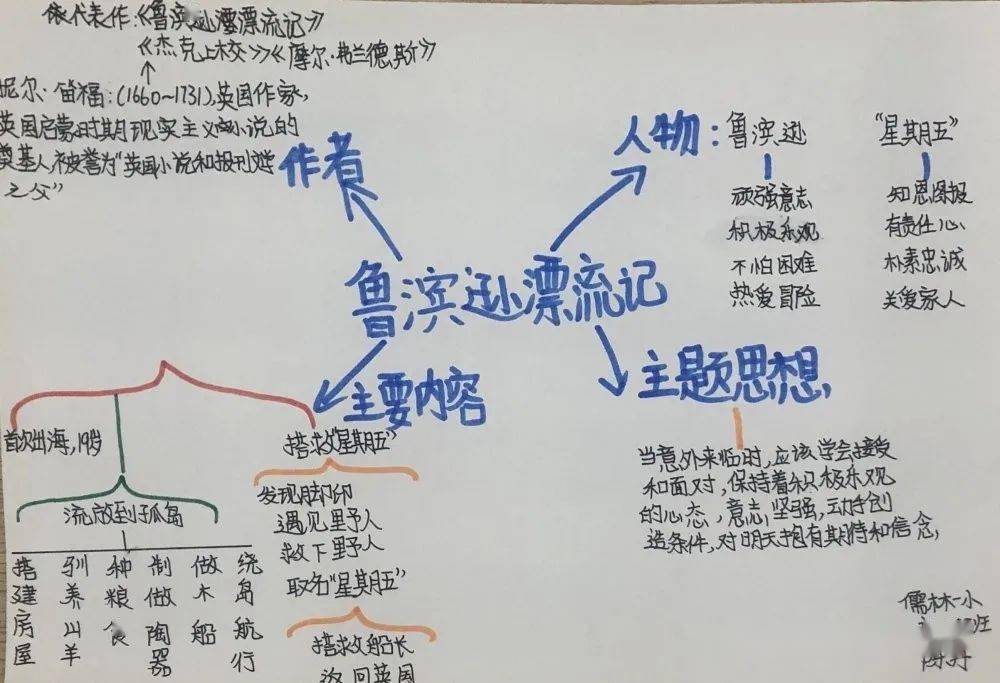 代表作:《鲁滨逊漂流记》
《杰克上校》《摩尔·弗兰德斯》
尼尔·笛福:(1660~1731),英国作家,
英国启蒙时期现实主义小说的
奠基人,被誉为"英国小说和报刊
之父"
作者
人物:鲁滨逊 "星期五"
顽强意志 知恩图报
积极乐观 有责任心
不怕困难 朴素忠诚
热爱冒险 关爱家人
鲁滨逊漂流记
主要内容
首次出海,19岁
搭救"星期五"
流放到孤岛
搭建房屋
驯养山羊
种粮食
制做陶器
做木船
绕岛航行
发现脚印
遇见野人
救下野人
取名"星期五"
搭救船长
返回英国
主题思想
当意外来临时,应该学会接受
和面对,保持着积极乐观
的心态,意志坚强,动手创
造条件,对明天抱有期待和信念,
儒林一小
班